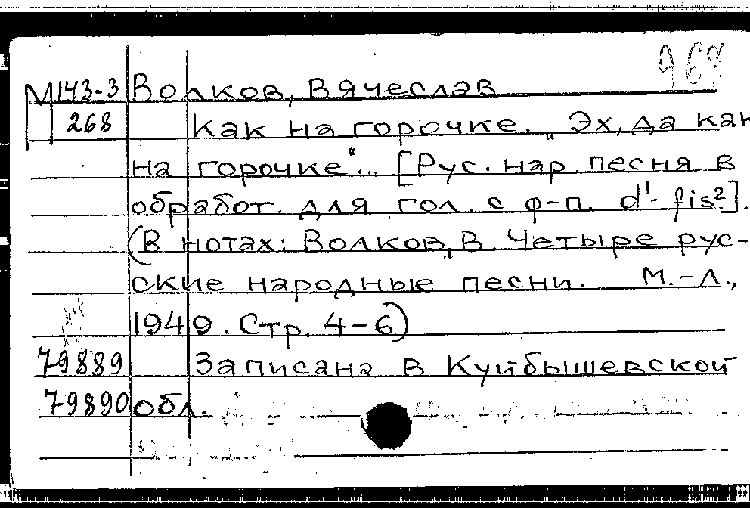 968
М143-3 Волков, Вячеслав
268 Как на горочке. "Эх, да как
на горочке"... [Рус. нар. песня в
обработ. для гол. с ф-п. d¹- fis²].
(В нотах: Волков, В. Четыре рус-
ские народные песни. М.-Л.,
1949. Стр. 4-6)
79889 Записана в Куйбышевской
79890 обл.